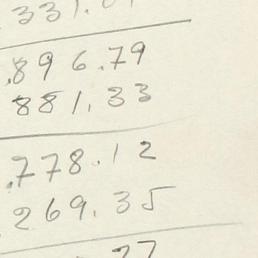 331.01
.896.79
881.33
.778.12
269.35
77